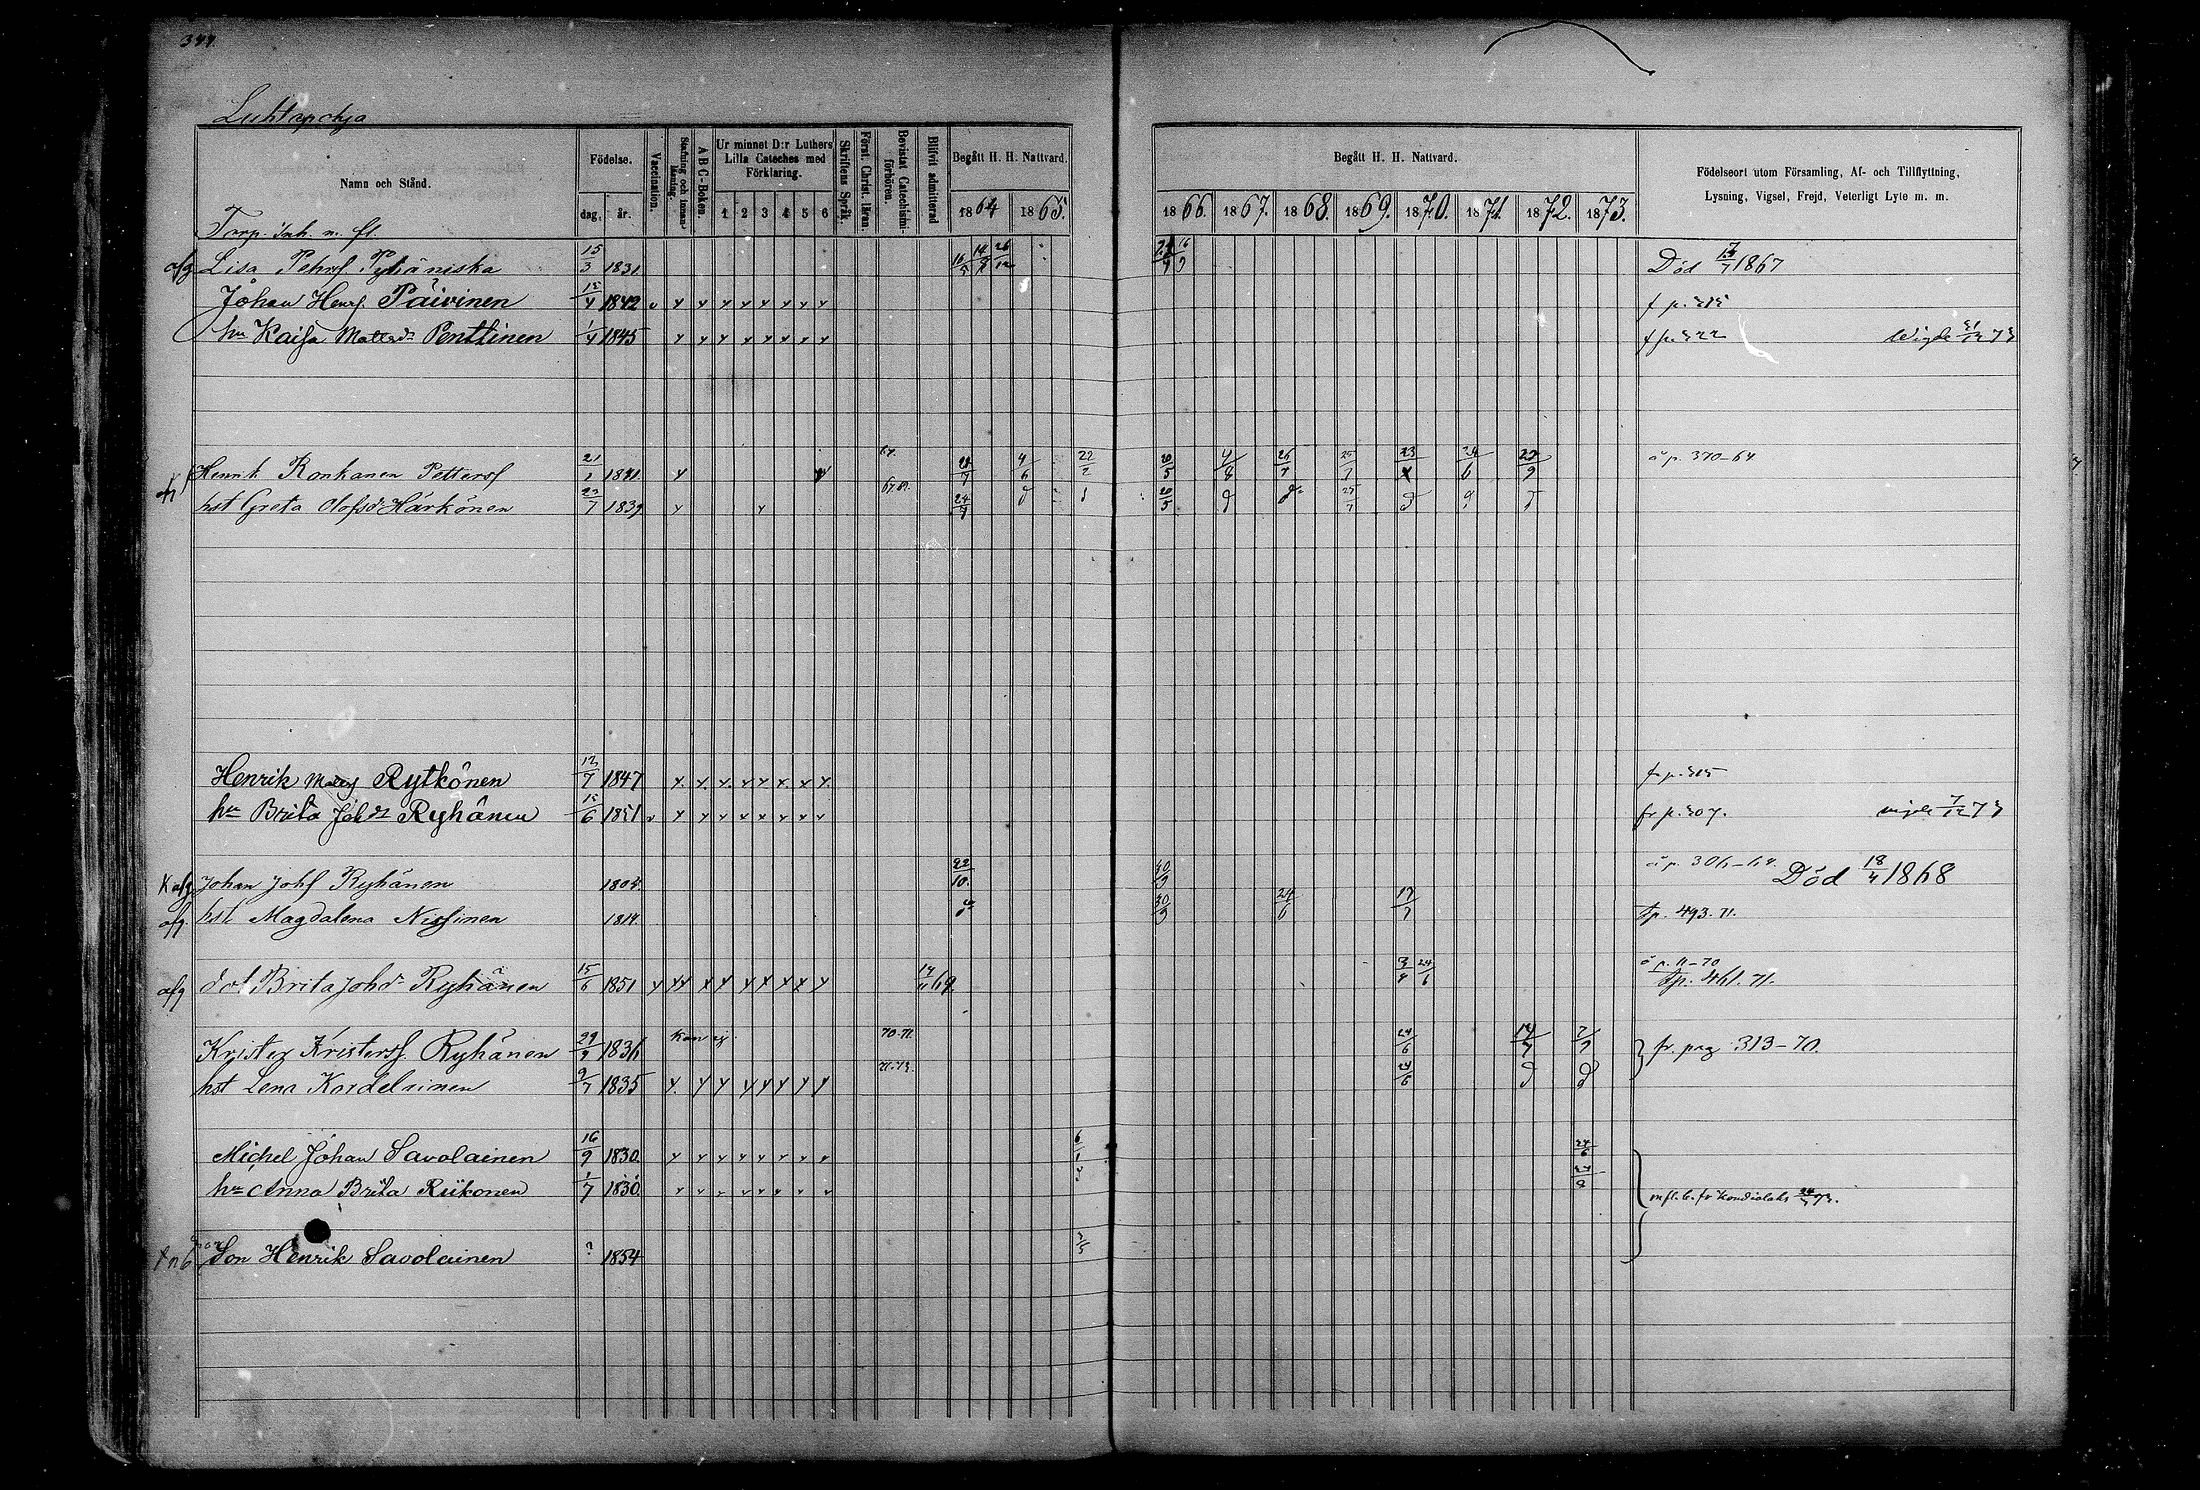 344
Luhtapohja
Namn och Stånd.
Födelse.
dag.
år.
Vaccination.
Stafning och innanläsning.
A B C-Boken.
Ur minnet D:r Luthers Lilla Cateches med Förklaring.
1 2 3 4 5 6
Skriftens Språk.
Först. Christ. lären.
Bevistat Catechismiförhören.
Blifvit admitterad
Begått H. H. Nattvard.
1864 1865.
Begått H. H. Nattvard.
1866. 1867. 1868. 1869. 1870. 1871. 1872. 1873.
Födelseort utom Församling, Af- och Tillflyttning,
Lysning, Vigsel, Frejd, Veterligt Lyte m. m.
Torp. Inh. m. fl.
afg Lisa Petersd Ryhäniska 15/3 1831 Död 1867
Johan Henrs. Päivinen 1842 v f p. 315
hu Kaisa Mattsdr Penttinen 1/4 1845 f p. 322 Wigde 73
Henrik Ronkanen Pettersf 21/1 67. 4/6 22/7 20/5 4/8 26/7 25/7 24/6 å p. 370-64
hst Greta Olofsd Härkönen 27/7 1839 67.69. 24/7 20/5 25/7
Henrik Matts Rytkönen 12/7 1847 fr p. 315
hu Brita Johdr Ryhänen 15/6 1851 v fr p. 307. vigde 7/12 73
K afg Johan Johs Ryhänen 1804 22/10. 30/9 å p. 306-64. Död 18/4 1868
afg. hst Magdalena Nissinen 1814 30/9 24/6 17/7 Tp. 493. 71.
afg dot Brita Johdr Ryhänen 15/6 1851 69. 24/6 å p. 11-70
Tp. 461. 71.
Krister Kristersf. Ryhänen 29/9 1836 kan ej. 70-71. 24/6 14/7 7/7 fr. pag 313-70.
hst Lena Kardelainen 9/7 1835 71-73. 24/6
Michel Johan Savolainen 16/9 1830. 6/1 24/6
hu Anna Brita Riikonen 1/7 1830. 24/8 m fl. b. fr Kondiolaks 73.
Son Henrik Savolainen ? 1854